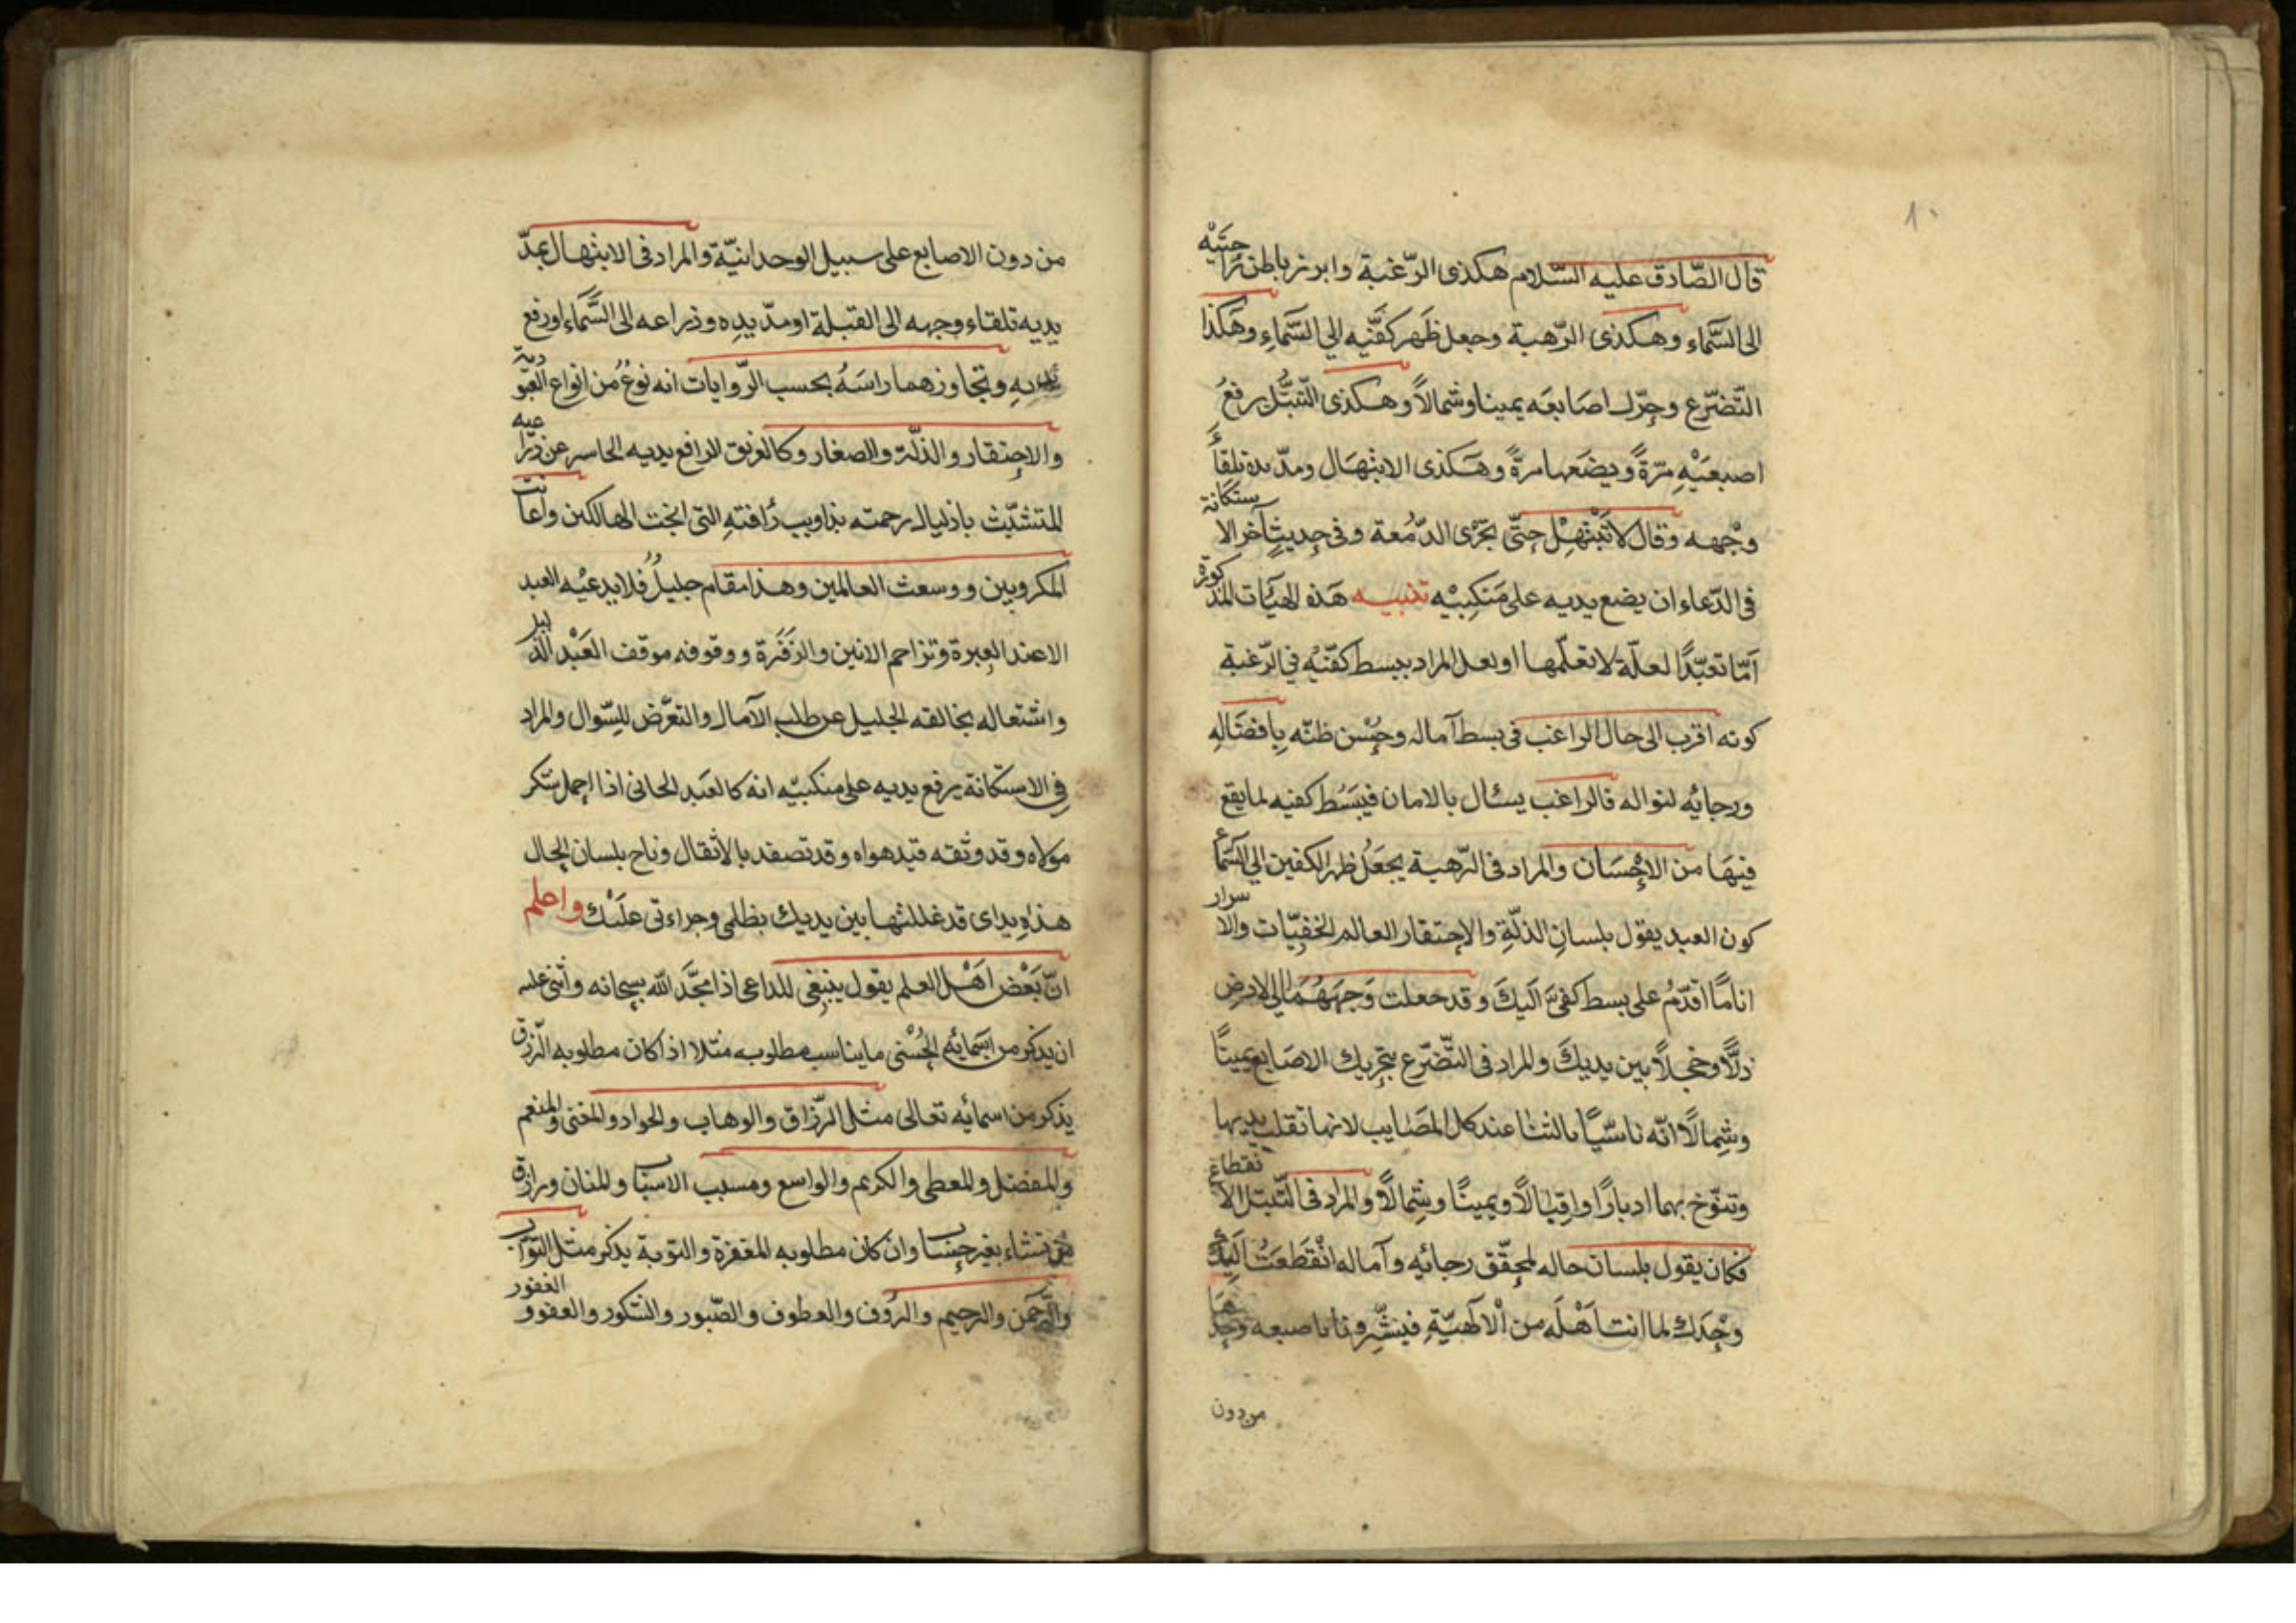 ١٠
قال الصّادق عليه السّلام هكذى الرّغبة وابرز باطن راحتيه
الى السَّماء وهكذى الرّهبة وجعل ظَهر كفَّيه الي السَّماءِ وهَكَذا
التّضرّع وحرّك اصَابعَه يمينا وشمالاً وهكذى التّبتُّل يرفعُ
اصبعَيْهِ مرّةً ويضعها مرةً وهَكذى الابتهَال ومدّ يده تلقاءَ
وجْهه وقال لا تَبْتَهِلْ حتّى تجَرْى الدّمْعة وفى حديثٍ آخر الاستكانة
فى الدّعاء ان يضع يديه على مَنكِبيْه تنبيه هَذه الهيَٰات المذكورة
اَمّا تعبّدًا لعلّة لا تعلّمها او لعل المراد ببسط كفّيْه في الرّغبة
كونه اقرب الى حال الراغب فى بسط آماله وحُسْن ظنّه بِافضَالِهِ
ورجائه لنواله فالراغب يسئال بالامان فيبَسُط كفيه لما يقع
فيهَا من الاِحْسَان والمراد فى الرّهبة بجعَل ظهر الكفين الي السَّماء
كون العبد يقول بلسانِ الذلّةِ والاِحتقار لعالم الخفيّات والاسرار
انا ما اقدّمُ على بسط كفىَّ اليكَ وقد جعلت وَجهَهُمَا الي الارض
ذلًّا وخجلًا بين يديكَ والمراد فى التّضرّع بتحريك الاصَابع يمينًا
وشِمالاً انّه تاسّيًا بالثنا عند كل المصَايب لانها تقلب يديها
وتنوّح بهما ادبارًا واِقبٰالاً ويمينًا وشِمالاً والمراد فى التّبتل الانقطاع
فكان يقول بلسان حاله لمحقّق رجائِه وآماله انْقَطعَتُ اليكَ
وحْدَك لما انت اَهْلَه من الْآلَهيّةِ فيشيرونا باصبعه وحدهَا
من دون
من دون الاصابع على سبيل الوحدانيّة والمراد فى الابتهال بمدّ
يديه تلقاء وجهه الى القبلة او مدّ يدِه وذراعه الى السَّماء او رفع
يديهِ وتجاوزهما راسَهُ بحسب الرّوايات انه نوعُ من انواع العبّودية
والاِحتقار والذلّة والصغار وكالغريق الرافع يديه الحاسر عن ذراعيه
المتشبّث باذيال رحمته بذاويب رُافتهِ التى انجت الهالكين واعانت
المكروبين ووسعت العالمين وهذا مقام جليلُ فلا يدعيْه العبد
الا عند العِبرة وتزاحم الانين والزَفَرة ووقوفه موقف العَبْد الذليل
واشتعاله بخالقه الجليل عن طلب الآمال والتعرّض للسّوال والمراد
فِى الاستكانة يرفع يديه على منكبيْه انه كالعَبد الجانى اذا احمل ستكر
مولاه وقد وثقه قيد هواه وقد تصفد بالاثقال وناح بلسان الحال
هذهِ يداى قد غللتها بين يديك بظلمى وجراءتى علَيْك واعلم
انّ بَعْض اَهْل العلم يقول ينبغى للداعى اذا مجّدَ الله سبحانه واثنى عليه
ان يذكر من اَسمائِهِ الحُسْنى ما يناسب مطلوبه مثلا اذا كان مطلوبه الرّزق
يذكر من اسمائه تعالى مثل الرّزاق والوهاب والجواد والمغنى والمنعم
والمفضل والمعطى والكريم والواسع ومسبب الاسباب والمنان ورازق
من تشاء بغير حِساب وان كان مطلوبه المغفرة والتوبة يذكر مثل التوّاب
والرّحمن والرحيم والرؤف والعطوف والصّبور والشكور والعفو والغفور